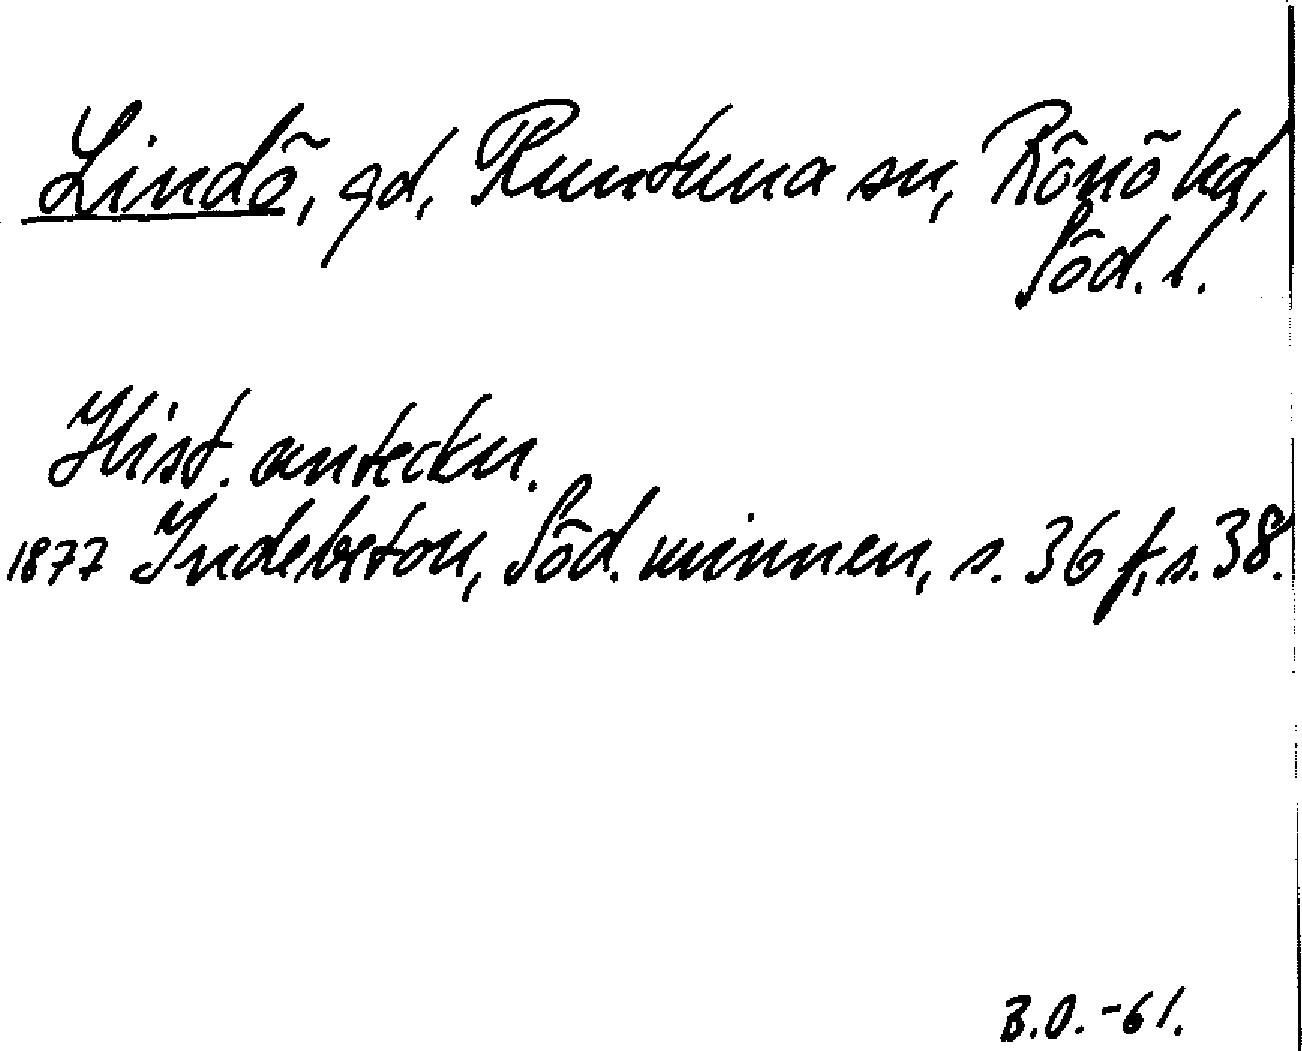 Lindö, gd, Runtuna sn, Rönö hd,
Söd. l.
Hist. anteckn.
1877 Indebetou, Söd. minnen, s. 36 f, s. 38.
B.O. -61.